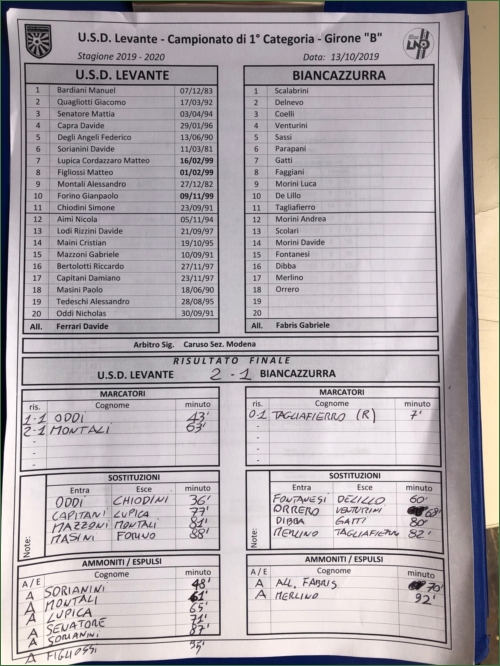 U.S.D. Levante - Campionato di 1° Categoria - Girone "B"
Stagione 2019 - 2020 Data: 13/10/2019
LND
U.S.D. LEVANTE
1 Bardiani Manuel 07/12/83
2 Quagliotti Giacomo 17/03/92
3 Senatore Mattia 03/04/94
4 Capra Davide 29/01/96
5 Degli Angeli Federico 13/06/90
6 Sorianini Davide 11/03/81
7 Lupica Cordazzaro Matteo 16/02/99
8 Figliossi Matteo 01/02/99
9 Montali Alessandro 27/12/82
10 Forino Gianpaolo 09/11/99
11 Chiodini Simone 23/09/91
12 Aimi Nicola 05/11/94
13 Lodi Rizzini Davide 21/09/97
14 Maini Cristian 19/10/95
15 Mazzoni Gabriele 10/09/91
16 Bertolotti Riccardo 27/11/97
17 Capitani Damiano 23/11/97
18 Masini Paolo 18/06/90
19 Tedeschi Alessandro 28/08/95
20 Oddi Nicholas 30/09/91
All. Ferrari Davide
BIANCAZZURRA
1 Scalabrini
2 Delnevo
3 Coelli
4 Venturini
5 Sassi
6 Parapani
7 Gatti
8 Faggiani
9 Morini Luca
10 De Lillo
11 Tagliafierro
12 Morini Andrea
13 Scolari
14 Morini Davide
15 Fontanesi
16 Dibba
17 Merlino
18 Orrero
19
20
All. Fabris Gabriele
Arbitro Sig. Caruso Sez. Modena
RISULTATO FINALE
U.S.D. LEVANTE 2 - 1 BIANCAZZURRA
MARCATORI
ris. Cognome minuto
1-1 ODDI 43'
2-1 MONTALI 63'
-
-
-
MARCATORI
ris. Cognome minuto
0-1 TAGLIAFIERRO (R) 7'
-
-
-
-
SOSTITUZIONI
Entra Esce minuto
ODDI CHIODINI 36'
CAPITANI LUPICA 77'
MAZZONI MONTALI 81'
MASINI FORINO 88'
Note:
SOSTITUZIONI
Entra Esce minuto
FONTANESI DELILLO 60'
ORRERO VENTURINI 68'
DIBBA GATTI 80'
MERLINO TAGLIAFIERRO 82'
Note:
AMMONITI / ESPULSI
A / E Cognome minuto
A SORIANINI 48'
A MONTALI 61'
A LUPICA 65'
A SENATORE 71'
A SORIANINI 87'
A FIGLIOSSI
AMMONITI / ESPULSI
A / E Cognome minuto
A ALL. FABRIS 70'
A MERLINO 92'